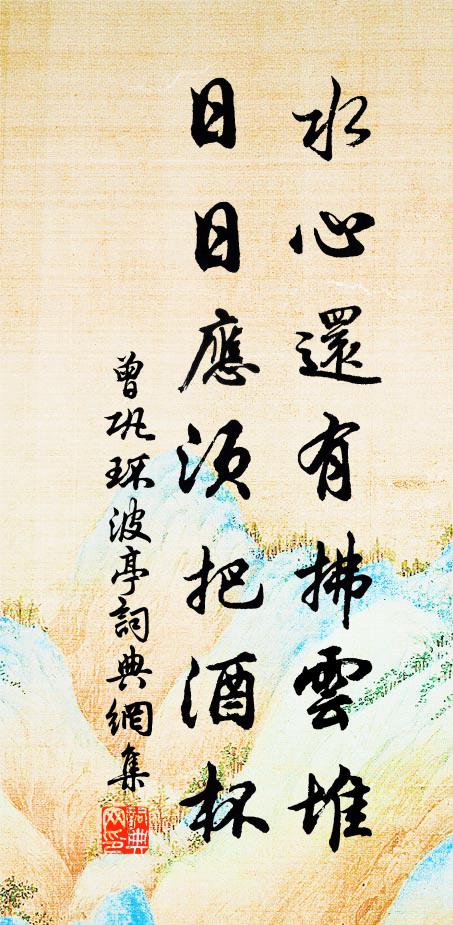 水心還有拂雲堆
日日應須把酒杯
曾巩环波亭詞典網集
詞典網印